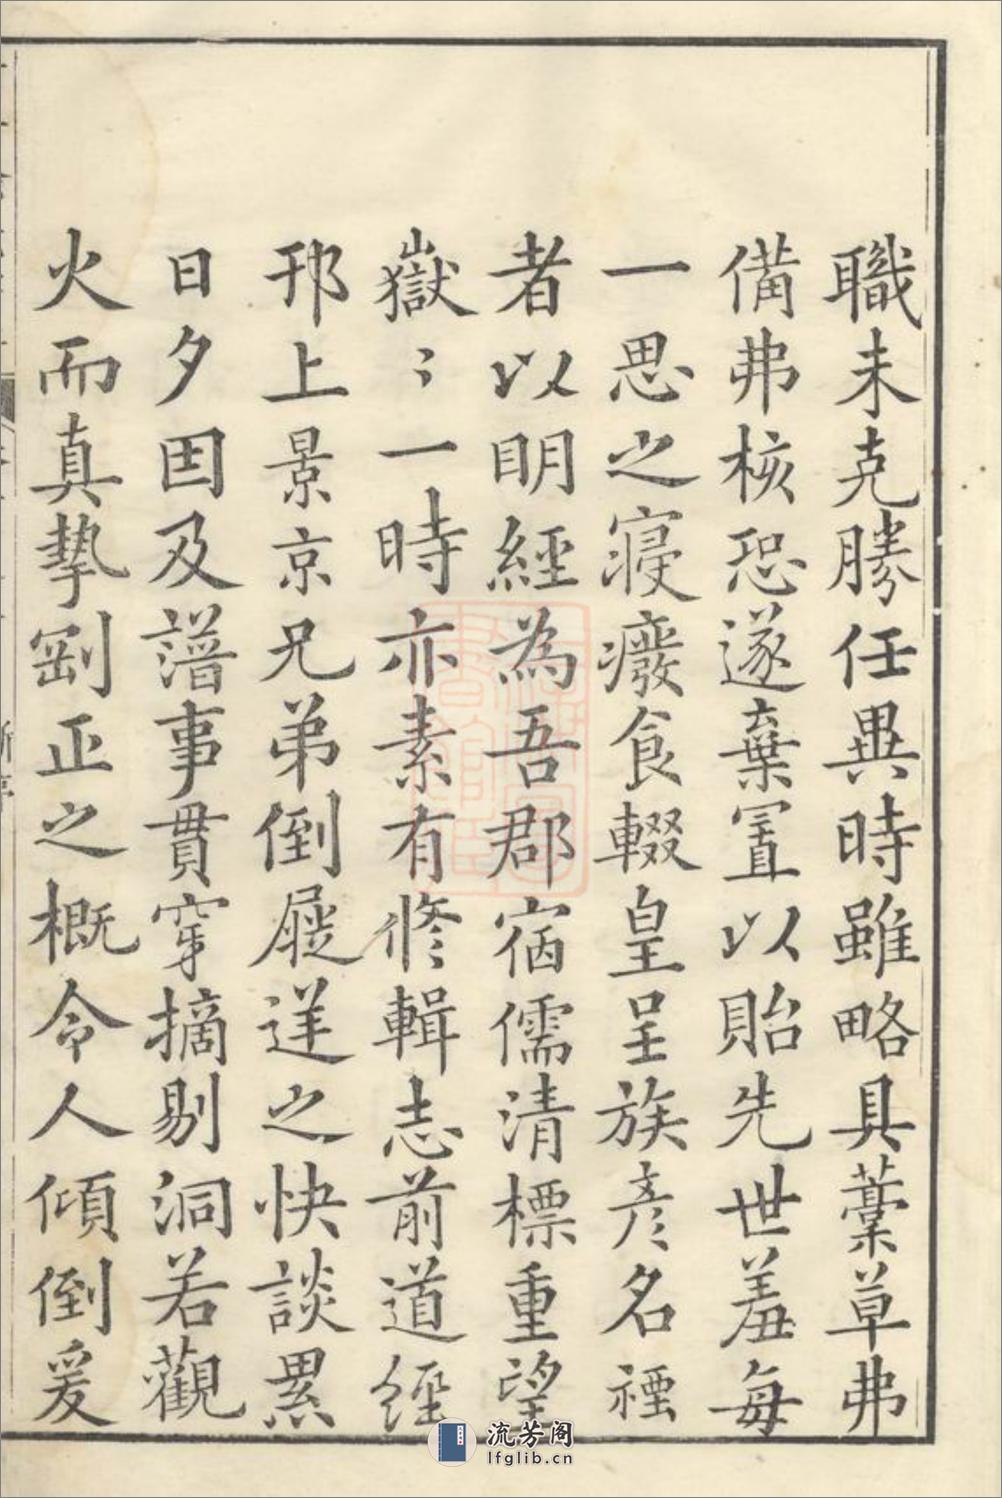 職未克勝任異時雖略具藁草弗
備弗核恐遂棄置以貽先世羞每
一思之寢癈食輟皇呈族彥名禋
者以明經為吾郡宿儒清標重望
嶽〻一時亦素有修輯志前道經
邗上景京兄弟倒屣迓之快談累
日夕因及譜事貫穿摘剔洞若觀
火而真摯剛正之概令人傾倒爰
流芳阁
lfglib.cn